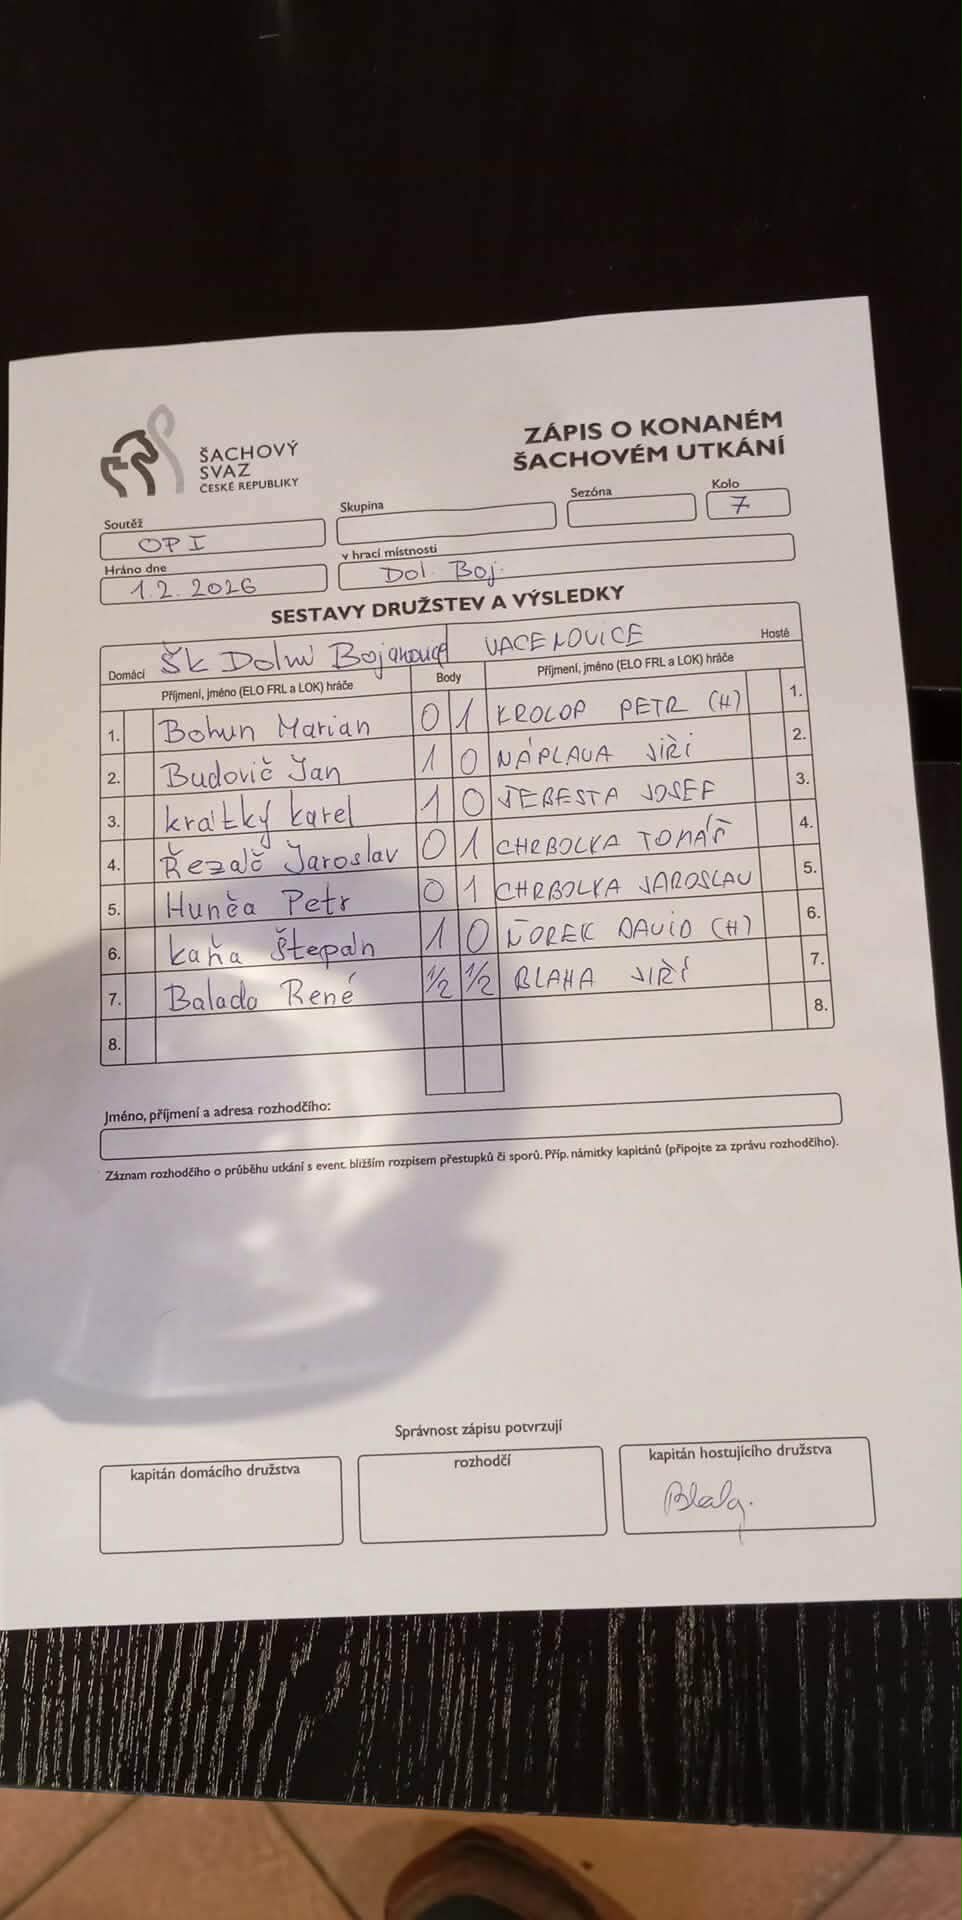 ŠACHOVÝ
SVAZ
ČESKÉ REPUBLIKY
ZÁPIS O KONANÉM
ŠACHOVÉM UTKÁNÍ
Soutěž Skupina Sezóna Kolo
OP I 7
Hráno dne v hrací místnosti
1.2.2026 Dol. Boj.
SESTAVY DRUŽSTEV A VÝSLEDKY
Domácí ŠK Dolní Bojanovice VACENOVICE Hosté
Příjmení, jméno (ELO FRL a LOK) hráče Body Příjmení, jméno (ELO FRL a LOK) hráče
1. Bohun Marian 0 1 KROLOP PETR (H) 1.
2. Budovič Jan 1 0 NÁPLAVA JIŘÍ 2.
3. Krátký Karel 1 0 ŠEBESTA JOSEF 3.
4. Řezáč Jaroslav 0 1 CHRBOLKA TOMÁŠ 4.
5. Hunča Petr 0 1 CHRBOLKA JAROSLAV 5.
6. Kaňa Štěpán 1 0 ŇOREK DAVID (H) 6.
7. Balada René 1/2 1/2 BLAHA JIŘÍ 7.
8. 8.
Jméno, příjmení a adresa rozhodčího:
Záznam rozhodčího o průběhu utkání s event. bližším rozpisem přestupků či sporů. Příp. námitky kapitánů (připojte za zprávu rozhodčího).
Správnost zápisu potvrzují
kapitán domácího družstva rozhodčí kapitán hostujícího družstva